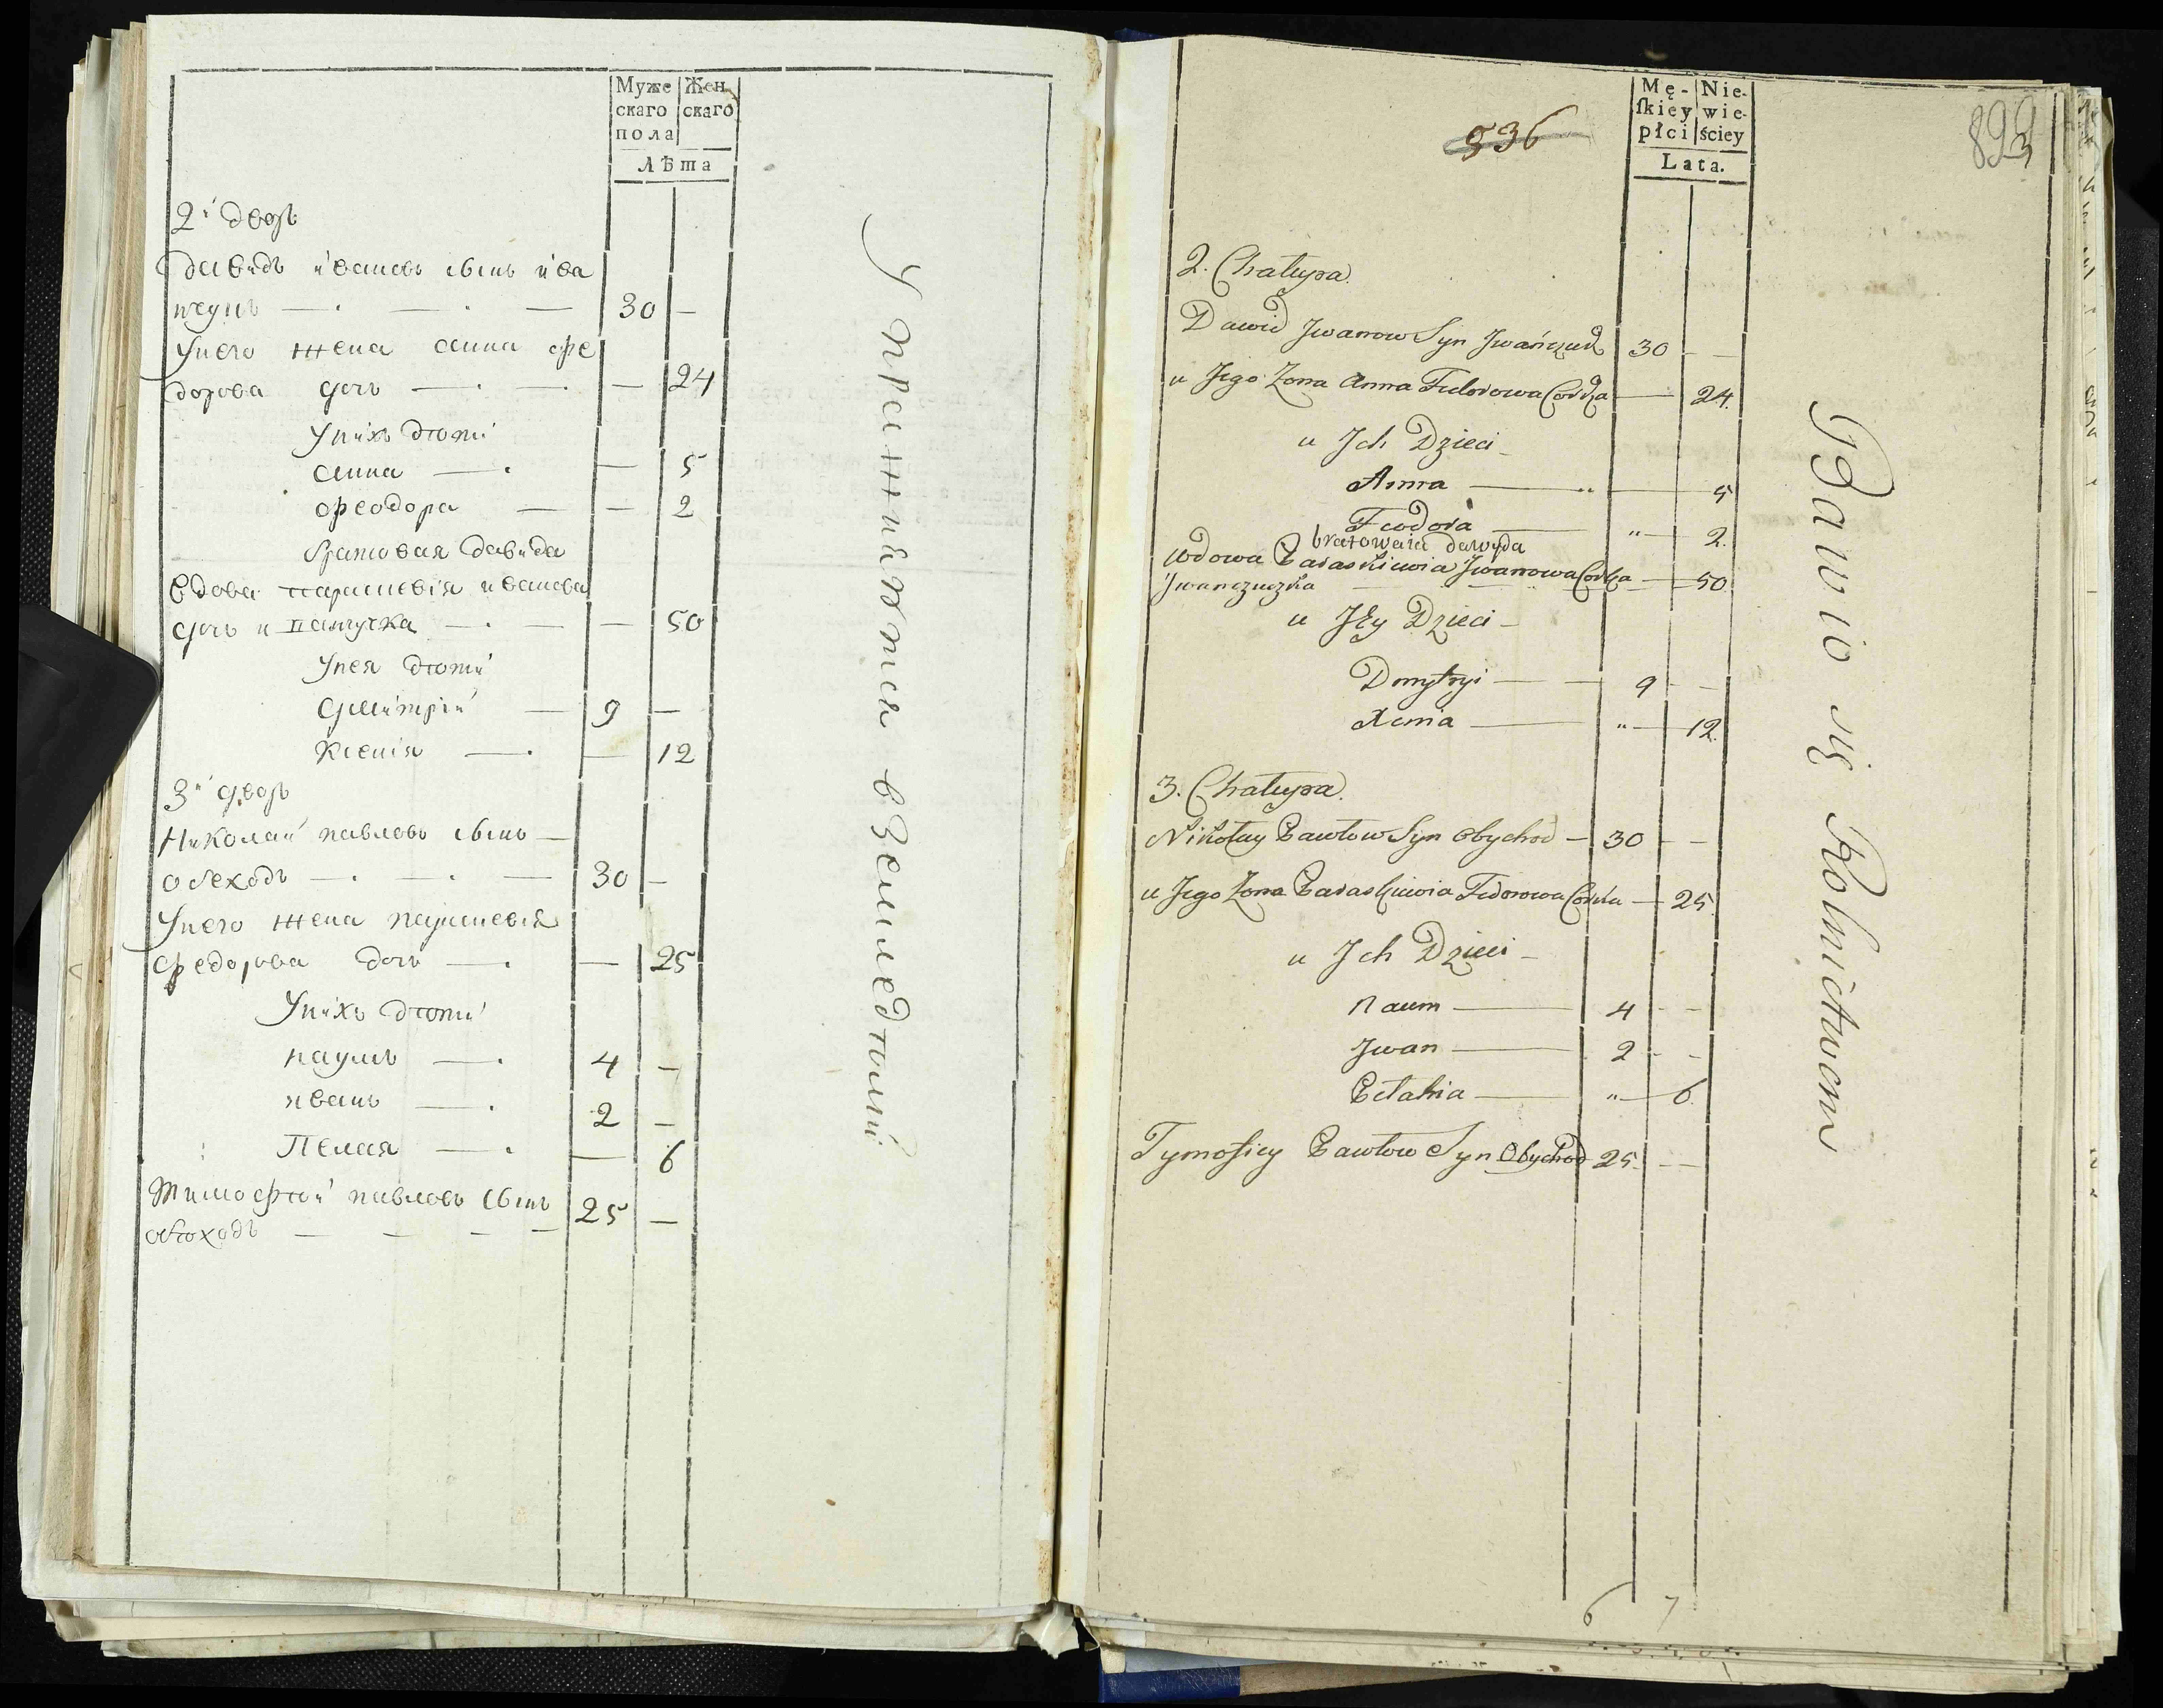 Муже Жен
скаго скаго
пола
Лѣта
2й дворъ
давидъ ивановъ сынъ ива
нчукъ — 30 —
У него жена анна фе
дорова дочь — — 24
У нихъ дѣти
анна — — 5
феодора — — 2
братовая давида
вдова параскевiя иванова
дочь — — 50
У нея дѣти
дмитрiй — 9 —
Ксенiя — — 12
3й дворъ
Николай павловъ сынъ —
обеходъ — 30 —
У него жена
федорова дочь — — 25
У нихъ дѣти
наумъ — 4 —
иванъ — 2 —
Пелагия — — 6
тимофѣй павловъ сынъ 25 —
обѣходъ —
Упражняются в земледѣлии
536
893
Mę- Nie-
ſkiey wie-
płci ściey
Lata.
2. Chałupa.
Dawid Jwanow Syn Jwańczuk 30 —
u Jego Zona Anna Fedorowa Corka — 24.
u Jch Dzieci
Anna — — 5
Feodora — " — 2.
bratowaia dawyda
wdowa Paraskiewia Jwanowa Corka — 50.
Jwanczuczka
u Jey Dzieci
Dmytryi — 9 —
Xenia — " — 12.
3. Chałupa.
Nikołay Pawłow Syn Obychod — 30 —
u Jego Zona Paraskiewia Fedorowa Corka — 25.
u Jch Dzieci
Naum — 4 —
Jwan — 2 —
Pełahia — " — 6.
Tymofiey Pawłow Syn Obychod 25. —
6 7
Bawio się Rolnictwem